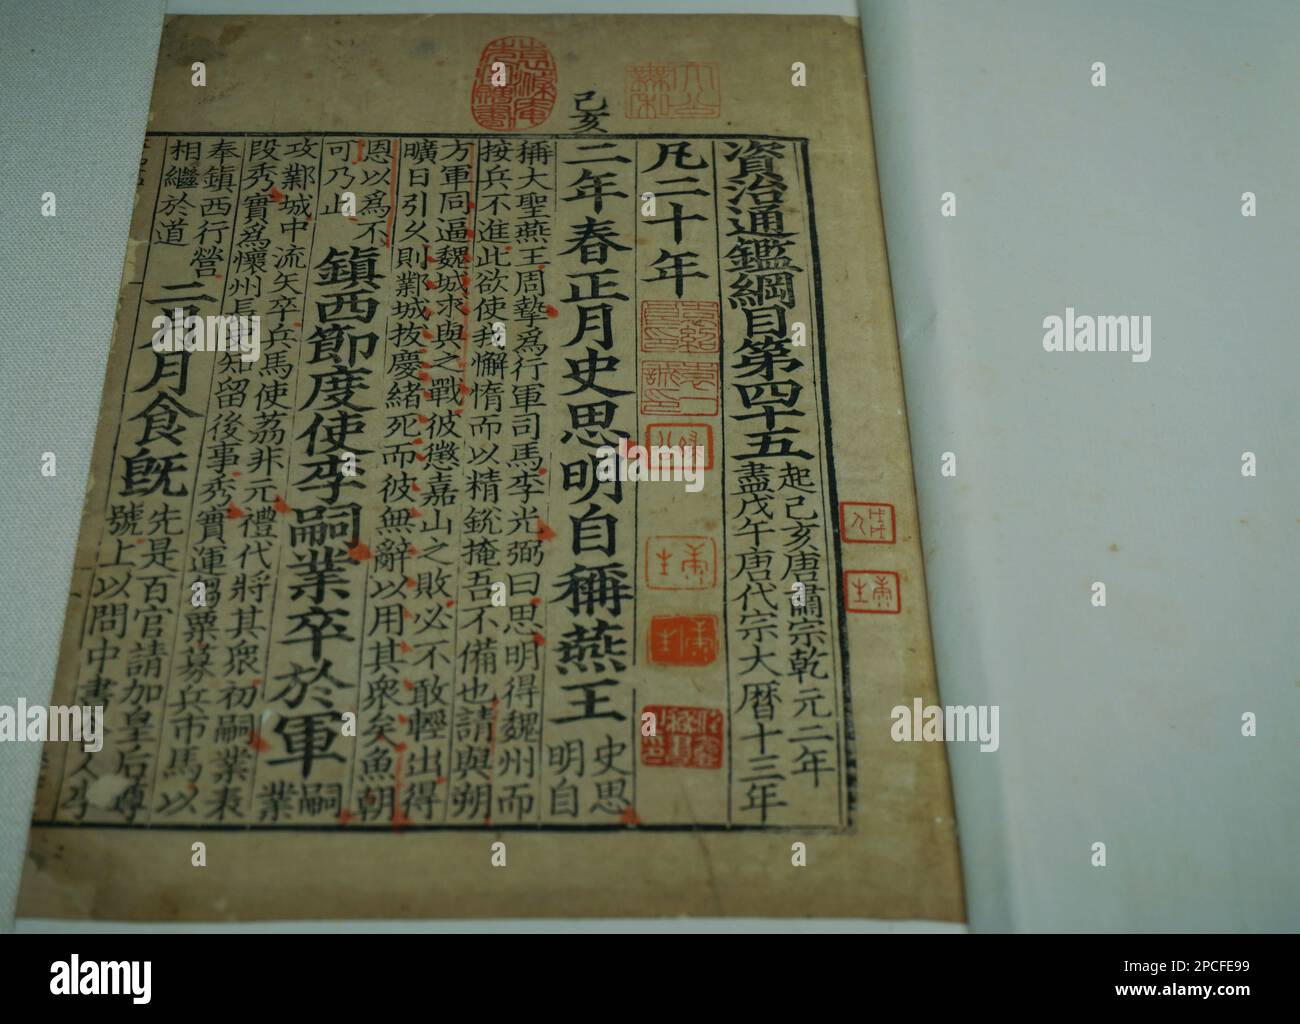 己亥
資治通鑑綱目第四十五
起己亥唐肅宗乾元二年
盡戊午唐代宗大曆十三年
凡二十年
二年春正月史思明自稱燕王
史思
明自
稱大聖燕王周摯爲行軍司馬李光弼曰思明得魏州而
按兵不進此欲使我懈惰而以精銳掩吾不備也請與朔
方軍同逼魏城求與之戰彼懲嘉山之敗必不敢輕出得
曠日引久則鄴城拔慶緒死而彼無辭以用其衆矣魚朝
恩以爲不
可乃止
鎮西節度使李嗣業卒於軍
嗣
業
攻鄴城中流矢卒兵馬使荔非元禮代將其衆初嗣業表
段秀實爲懷州長史知留後事秀實運芻粟募兵市馬以
奉鎮西行營
相繼於道
二月月食既
先是百官請加皇后尊
號上以問中書
alamy
alamy
alamy
a
a
a
a
a
a
alamy
Image ID: 2PCFE99
www.alamy.com